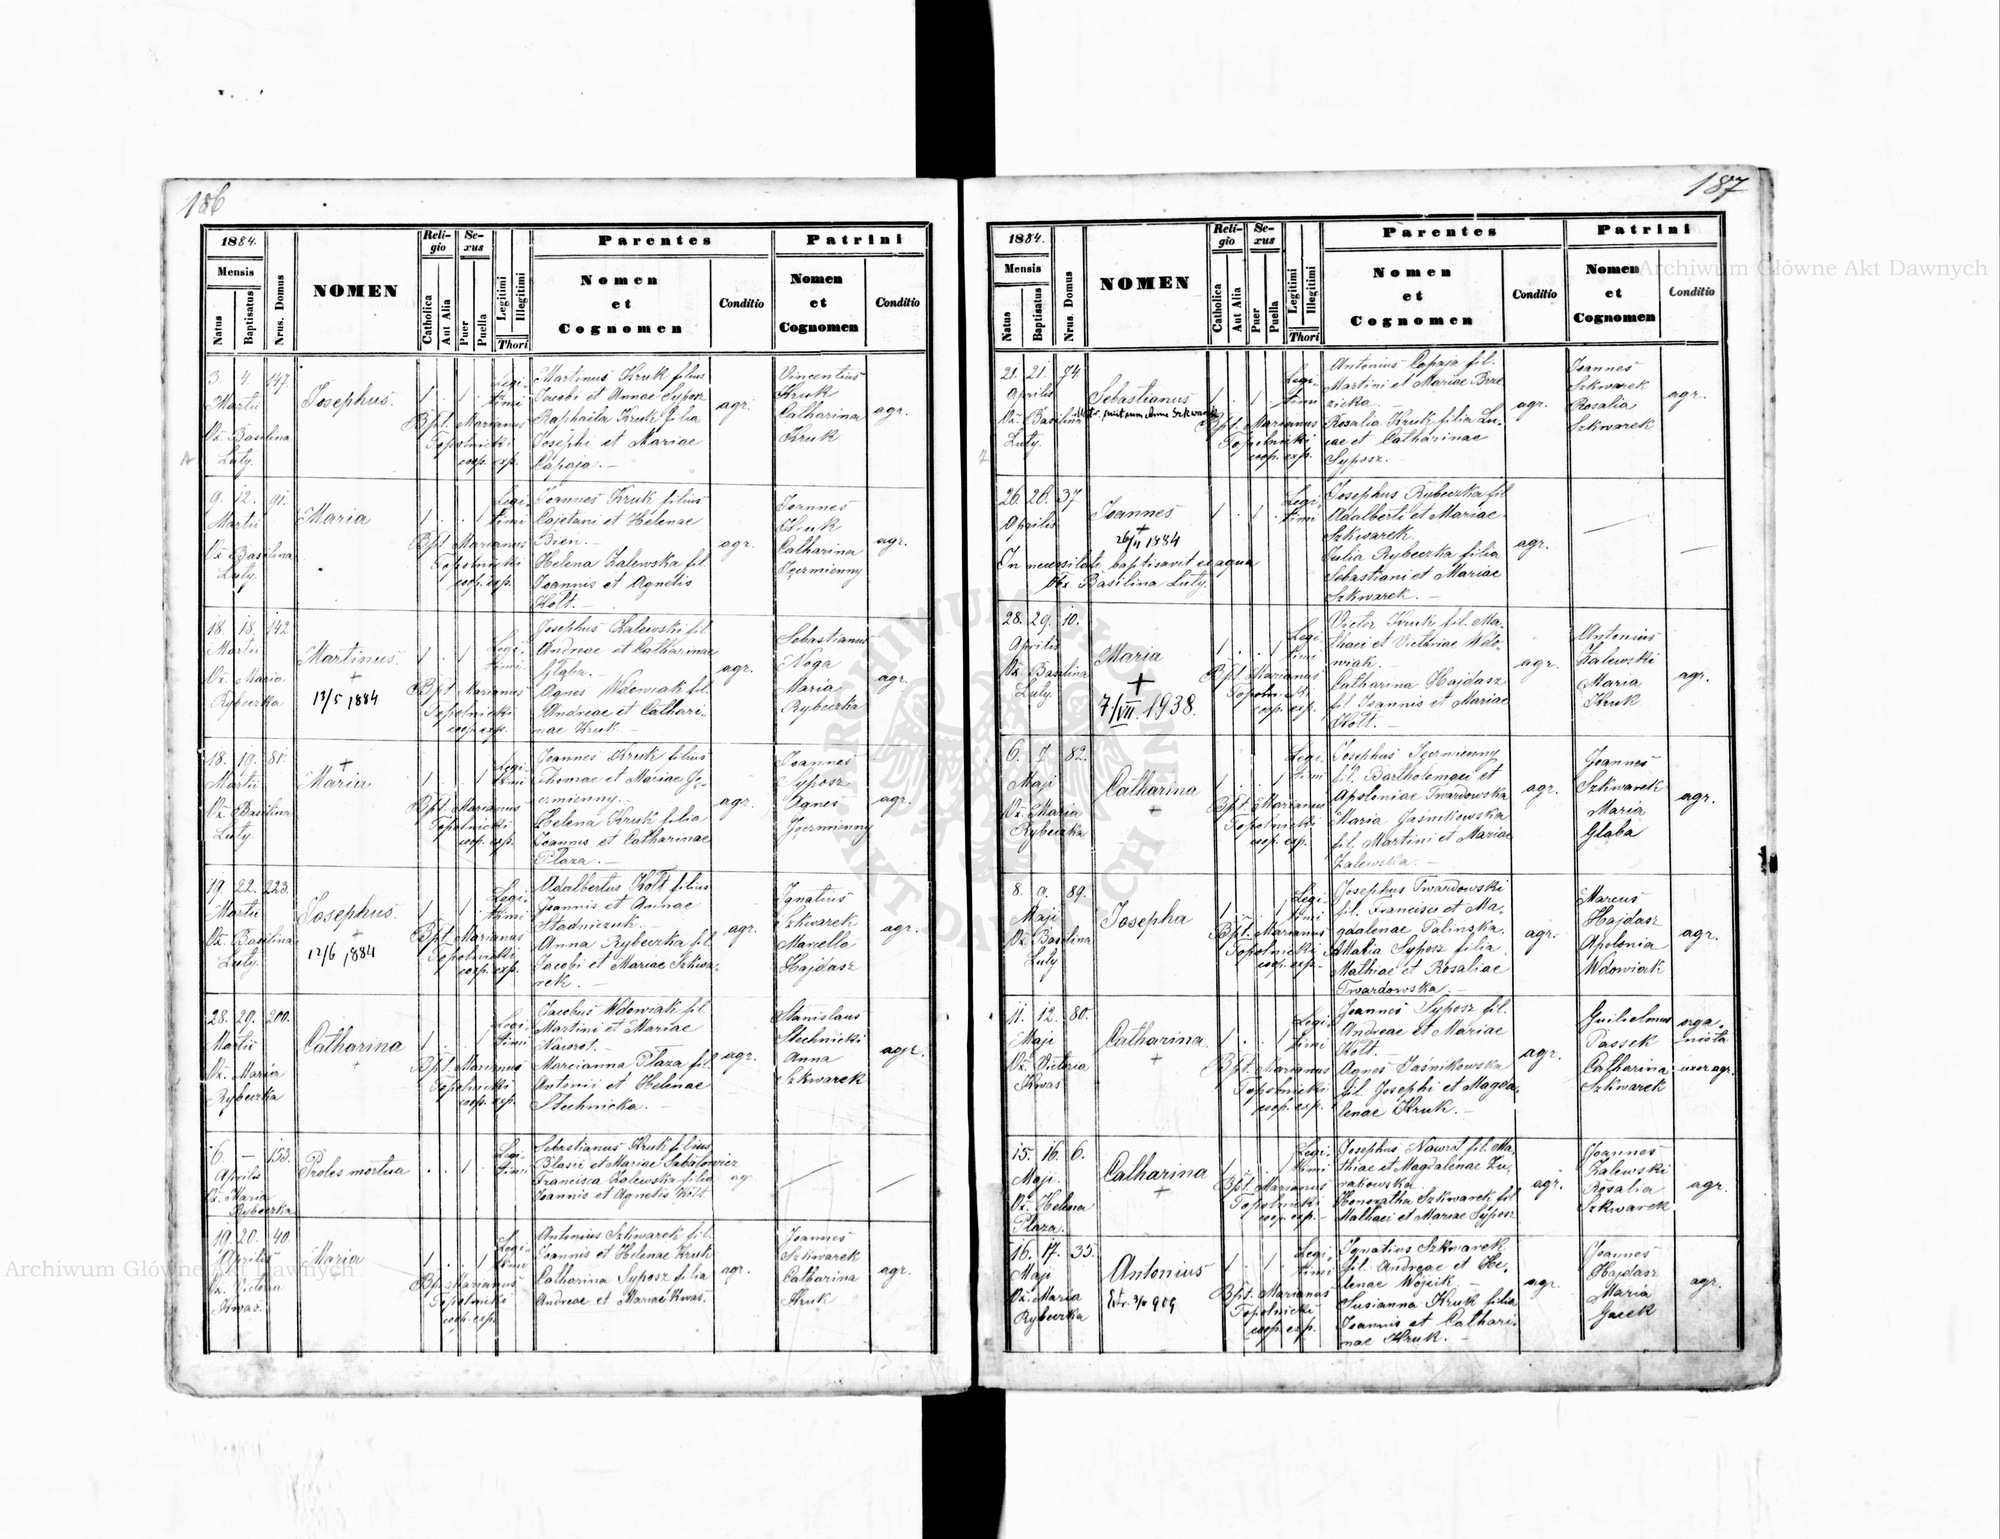 186
1884.
Mensis
Natus
Baptisatus
Nrus. Domus
NOMEN
Reli-
gio
Catholica
Aut Alia
Se-
xus
Puer
Puella
Legitimi
Illegitimi
Thori
Parentes
Nomen
et
Cognomen
Conditio
Patrini
Nomen
et
Cognomen
Conditio
3. 4. 147.
Martii
Oz. Basilina
Luty.
Josephus.
1 . 1 .
Legi-
timi
Bpt. Marianus
Topolnicki
coop. exp.
Martinus Kruk filius
Jacobi et Annae Syposz
Raphaila Kruk filia
Josephi et Mariae
Capaja. –
agr.
Vincentius
Kruk
Catharina
Kruk
agr.
9. 12. 91.
Martii
Oz. Basilina
Luty.
Maria
1 . . 1
Legi-
timi
Bpt. Marianus
Topolnicki
coop. exp.
Joannes Kruk filius
Cajetani et Helenae
Bien. –
Helena Zalewska fil.
Joannis et Agnetis
Kołt. –
agr.
Joannes
Kruk
Catharina
Iżermienny
agr.
18. 18. 142
Martii
Oz. Maria
Rybeczka
Martinus.
+
13/5 1884
1 . 1 .
Legi-
timi
Bpt. Marianus
Topolnicki
coop. exp.
Josephus Zalewski fil.
Andreae et Catharinae
Głąba. –
Agnes Wdowiak fil.
Andreae et Cathari-
nae Kruk –
agr.
Sebastianus
Noga
Maria
Rybeczka
agr.
18. 19. 81.
Martii
Oz. Basilina
Luty.
+
Maria
1 . . 1
Legi-
timi
Bpt. Marianus
Topolnicki
coop. exp.
Joannes Kruk filius
Thomae et Mariae
Helena Kruk filia
Joannis et Catharinae
Plaza. –
agr.
Joannes
Syposz
Agnes
agr.
19. 22. 223.
Martii
Oz. Basilina
Luty.
Josephus.
+
12/6 1884
1 . 1 .
Legi-
timi
Bpt. Marianus
Topolnicki
coop. exp.
Adalbertus Kołt filius
Joannis et Annae
Stadniczuk. –
Anna Rybeczka fil.
Jacobi et Mariae Szkwa-
rek. –
agr.
Ignatius
Szkwarek
Marcella
Hajdasz
agr.
28. 29. 200.
Martii
Oz. Maria
Rybeczka
Catharina
+
1 . . 1
Legi-
timi
Bpt. Marianus
Topolnicki
coop. exp.
Jacobus Wdowiak fil.
Martini et Mariae
Nawrot. –
Marcianna Plaza fil.
Antonii et Helenae
Stechnicka. –
agr.
Stanislaus
Stechnicki
Anna
Szkwarek
agr.
6. – 153.
Aprilis
Oz. Maria
Rybeczka
Proles mortua
. . 1 .
Legi-
timi
Sebastianus Kruk filius
Blasii et Mariae Sabatowicz
Francisca Zalewska filia
Joannis et Agnetis Kołt.
agr.
–
–
19. 20. 40.
Aprilis
Oz. Victoria
Kwas.
Maria
1 . . 1
Legi-
timi
Bpt. Marianus
Topolnicki
coop. exp.
Antonius Szkwarek fil.
Joannis et Helenae Kruk
Catharina Syposz filia
Andreae et Mariae Kwas.
agr.
Joannes
Szkwarek
Catharina
Kruk
agr.
187
1884.
Mensis
Natus
Baptisatus
Nrus. Domus
NOMEN
Reli-
gio
Catholica
Aut Alia
Se-
xus
Puer
Puella
Legitimi
Illegitimi
Thori
Parentes
Nomen
et
Cognomen
Conditio
Patrini
Nomen
et
Cognomen
Conditio
21. 21. 74
Aprilis
Oz. Basilina
Luty.
Sebastianus
Szkwarek
1 . 1 .
Legi-
timi
Bpt. Marianus
Topolnicki
coop. exp.
Antonius Capaja fil.
Martini et Mariae Brze
zicka. –
Rosalia Kruk filia Lu-
cae et Catharinae
Syposz. –
agr.
Joannes
Szkwarek
Rosalia
Szkwarek
agr.
26. 26. 37.
Aprilis
Joannes
+
1884
In necessitate baptisavit ex aqua
Obx. Basilina Luty.
1 . 1 .
Legi-
timi
Josephus Rybeczka fil
Adalberti et Mariae
Szkwarek.
Julia Rybeczka filia
Sebastiani et Mariae
Szkwarek. –
agr.
–
–
28. 29. 10.
Aprilis
Oz. Basilina
Luty.
Maria
+
7/VII. 1938.
1 . . 1
Legi-
timi
Bpt. Marianus
Topolnicki
coop. exp.
Victor Kruk fil. Ma-
thaei et Victoriae Wdo-
wiak. –
Catharina Hajdasz
fil Joannis et Mariae
Kołt. –
agr.
Antonius
Zalewski
Maria
Kruk
agr.
6. 7. 82.
Maji
Oz. Maria
Rybeczka
Catharina
+
1 . . 1
Legi-
timi
Bpt. Marianus
Topolnicki
coop. exp.
Josephus Iżermienny
fil. Bartholomaei et
Apoloniae Twardowska
Maria Jaśnikowska
fil. Martini et Mariae
Zalewska. –
agr.
Joannes
Szkwarek
Maria
Głąba
agr.
8. 9. 89.
Maji
Oz. Basilina
Luty
Josepha
1 . . 1
Legi-
timi
Bpt. Marianus
Topolnicki
coop. exp.
Josephus Twardowski
fil. Francisci et Ma-
gdalenae Palinska.
Maria Syposz filia
Mathiae et Rosaliae
Twardowska. –
agr.
Marcus
Hajdasz
Apolonia
Wdowiak
agr.
11. 12. 80.
Maji
Oz. Victoria
Kwas
Catharina.
+
1 . . 1
Legi-
timi
Bpt. Marianus
Topolnicki
coop. exp.
Joannes Syposz fil.
Andreae et Mariae
Kołt. –
Agnes Jaśnikowska
fil. Josephi et Magda-
lenae Kruk. –
agr.
Guilielmus
Passek
Catharina
Szkwarek
orga-
nista
uxor agr.
15. 16. 6.
Maji.
Oz. Helena
Plaza.
Catharina
+
1 . . 1
Legi-
timi
Bpt. Marianus
Topolnicki
coop. exp. –
Josephus Nawrot fil. Ma-
thiae et Magdalenae Żu-
rakowska.
Honoratha Szkwarek fil
Mathaei et Mariae Syposz
agr.
Joannes
Zalewski
Rosalia
Szkwarek
agr.
16. 17. 35.
Maji
Oz. Maria
Rybeczka
Antonius
1 . 1 .
Legi-
timi
Bpt. Marianus
Topolnicki
coop. exp.
Ignatius Szkwarek
fil. Andreae et He-
lenae Wójcik. –
Susianna Kruk filia
Joannis et Cathari-
nae Kruk. –
agr.
Joannes
Hajdasz
Maria
Gacek
agr.
Archiwum Główne Akt Dawnych
Archiwum Główne Akt Dawnych